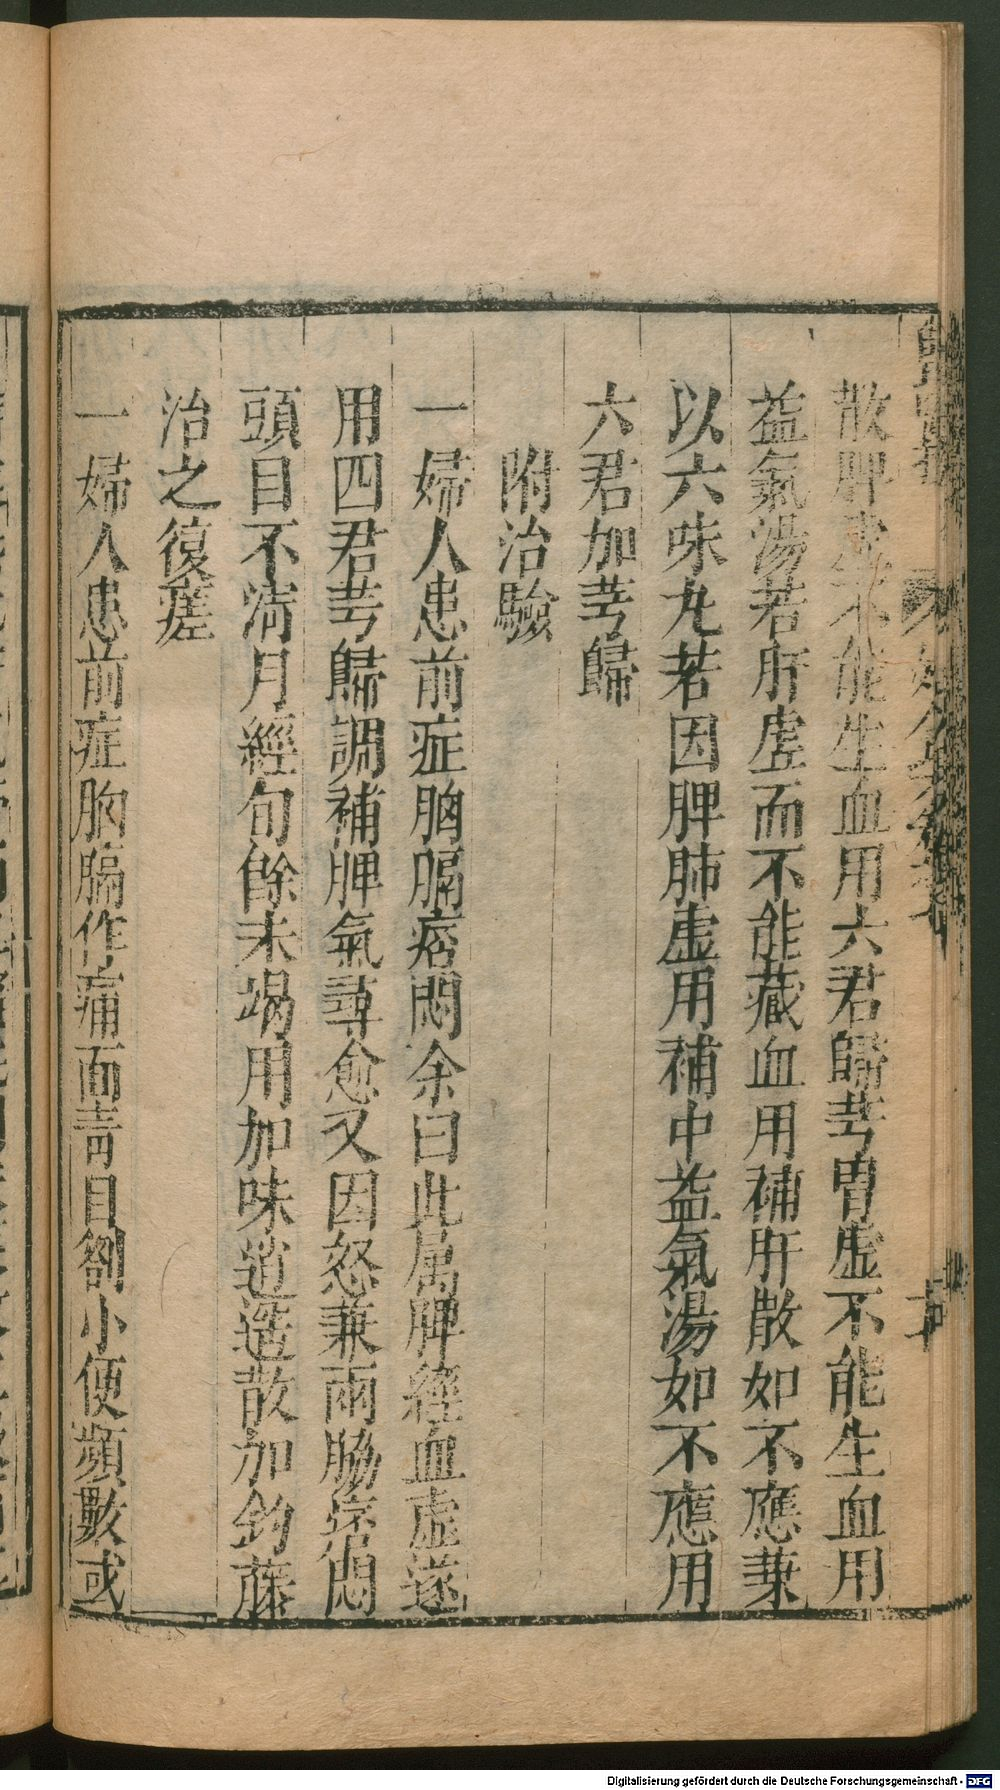 散脾虛不能生血用六君歸芎胃虛不能生血用
益氣湯若肝虛而不能藏血用補肝散如不應兼
以六味丸若因脾肺虛用補中益氣湯如不應用
六君加芎歸
附治驗
一婦人患前症胸膈痞悶余曰此属脾經血虛遂
用四君芎歸調補脾氣尋愈又因怒兼兩脇痞悶
頭目不淸月經旬餘未竭用加味逍遥散加鈎藤
治之復瘥
一婦人患前症胸膈作痛面靑目劄小便頻數或
Digitalisierung gefördert durch die Deutsche Forschungsgemeinschaft - DFG